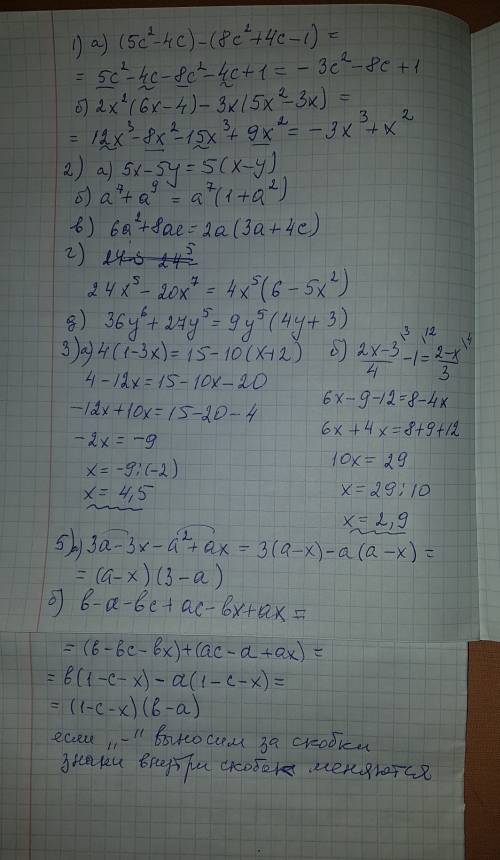 1) а) (5c²-4c)-(8c²+4c-1)=
= 5c²-4c-8c²-4c+1=-3c²-8c+1
б) 2x²(6x-4)-3x(5x²-3x)=
= 12x³-8x²-15x³+9x²=-3x³+x²
2) а) 5x-5y=5(x-y)
б) a⁷+a⁹=a⁷(1+a²)
в) 6a²+8ac=2a(3a+4c)
г)
24x⁵-20x⁷=4x⁵(6-5x²)
д) 36y⁶+27y⁵=9y⁵(4y+3)
3) а) 4(1-3x)=15-10(x+2)
4-12x=15-10x-20
-12x+10x=15-20-4
-2x=-9
x=-9:(-2)
x=4,5
б) (2x-3)/4 \3 -1 \12 = (2-x)/3 \4
6x-9-12=8-4x
6x+4x=8+9+12
10x=29
x=29:10
x=2,9
5) а) 3a-3x-a²+ax=3(a-x)-a(a-x)=
=(a-x)(3-a)
б) в-a-вc+ac-вx+ax=
=(в-вc-вx)+(ac-a+ax)=
=в(1-c-x)-a(1-c-x)=
=(1-c-x)(в-a)
если „-" выносим за скобки
знаки внутри скобок меняются